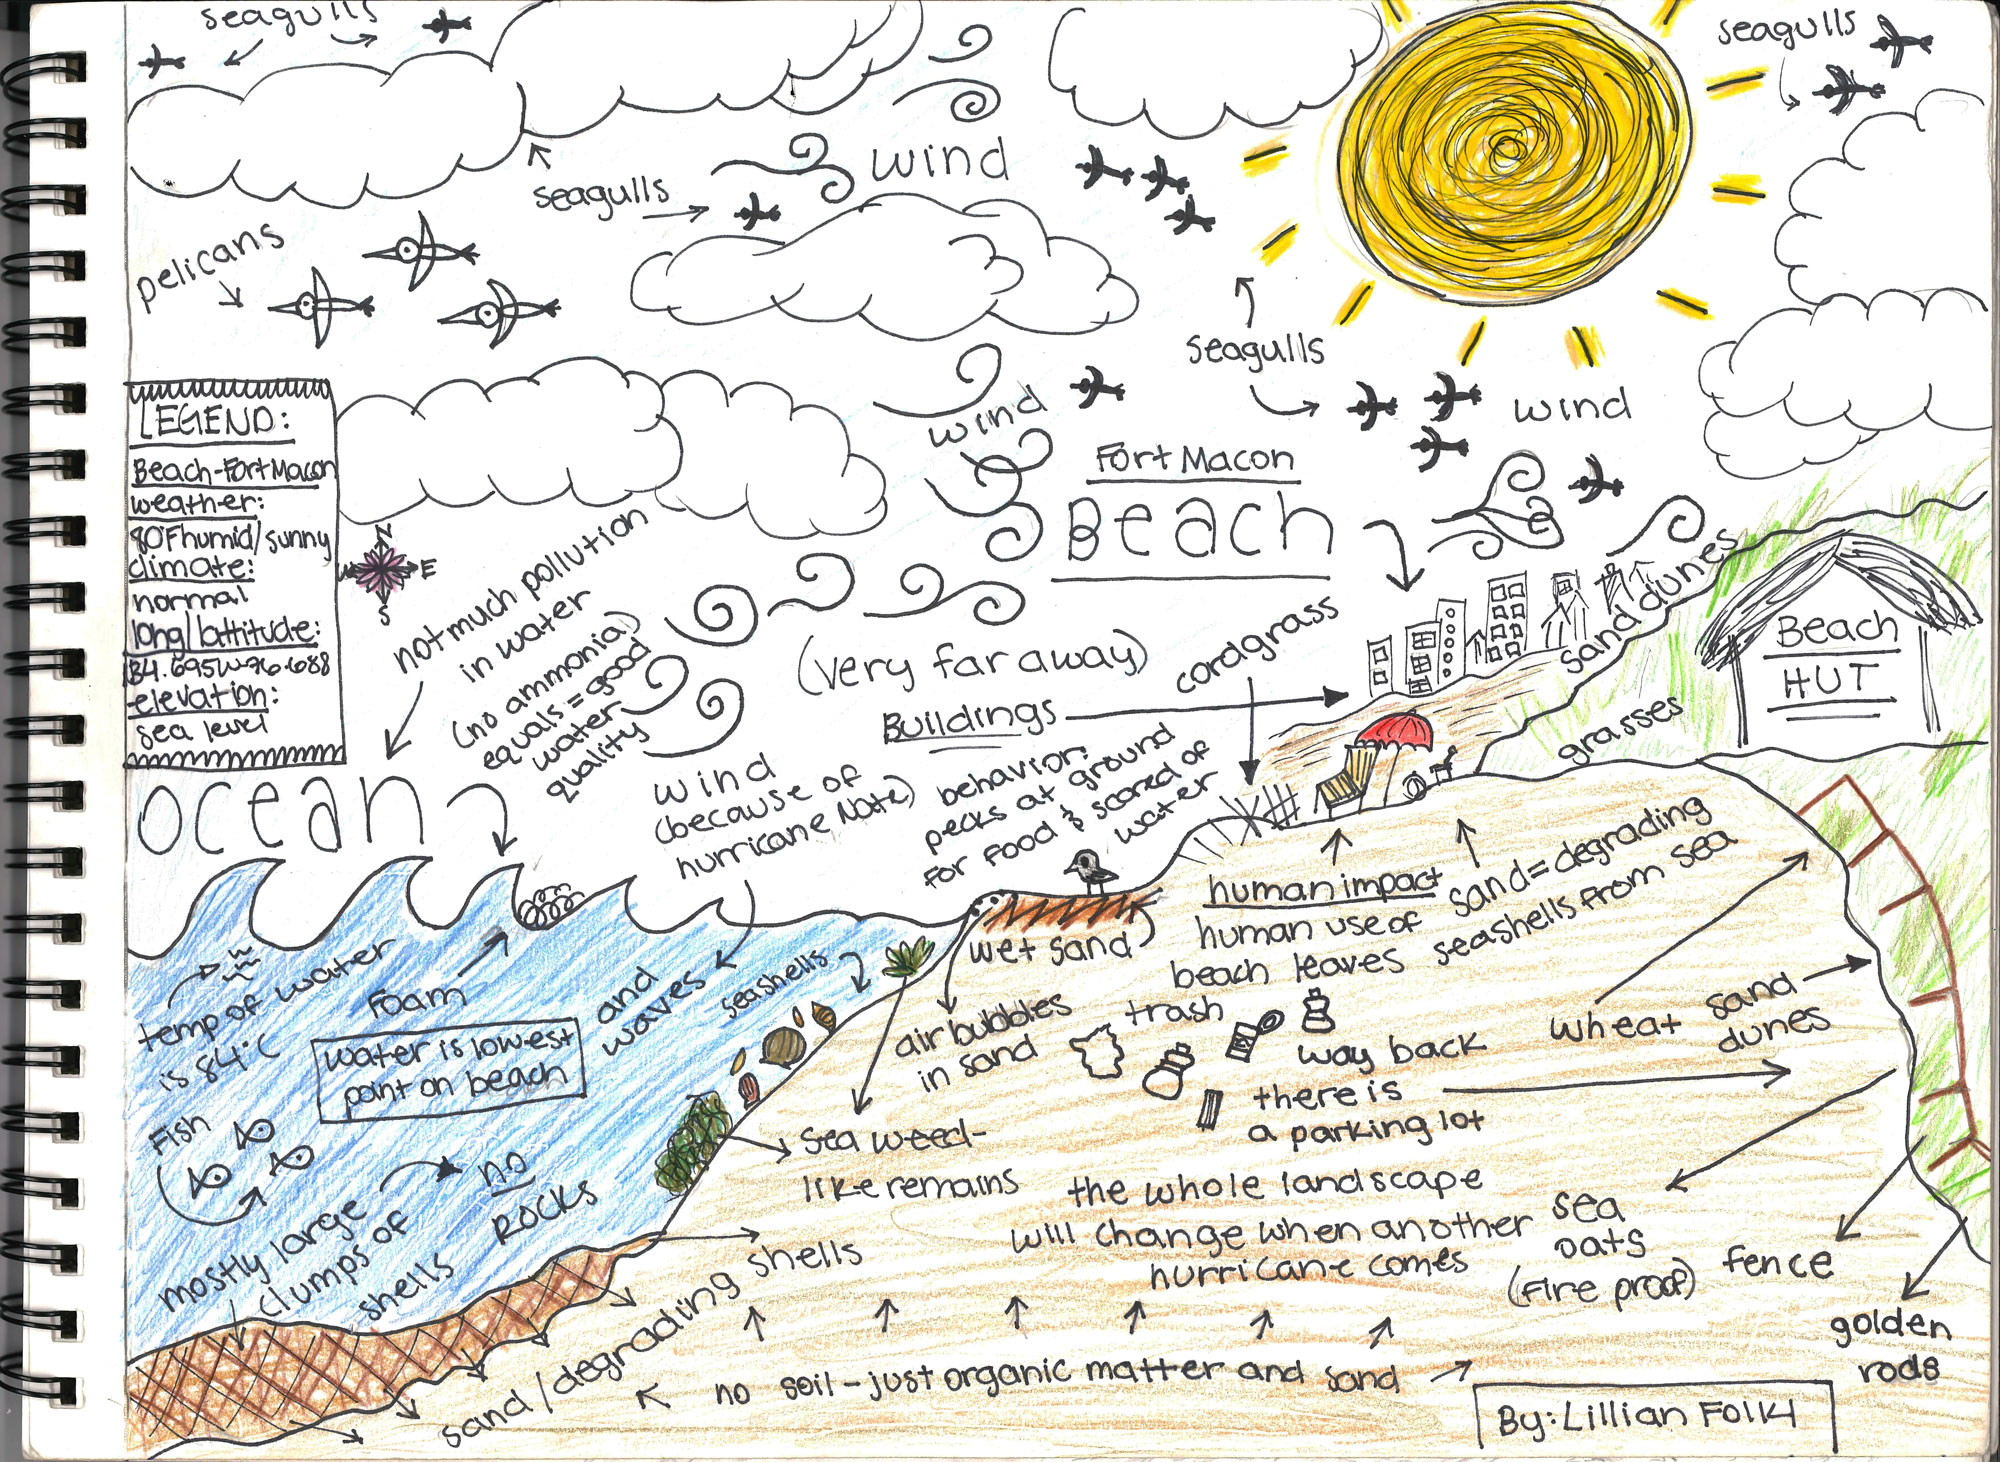 seagulls
seagulls
seagulls
wind
pelicans
seagulls
wind
wind
LEGEND:
Beach-Fort Macon
weather:
80°F humid/sunny
climate:
normal
long/lattitude:
34.695W-76.688
elevation:
sea level
N
E
S
W
Fort Macon
BEACH
not much pollution
in water
(no ammonia)
equals = good
water
quality
(very far away)
Buildings
cordgrass
sand dunes
Beach
HUT
grasses
ocean
wind
(because of
hurricane Nate)
and
waves
behavior:
pecks at ground
for food & scared of
water
human impact
human use of
beach leaves
trash
sand = degrading
seashells from sea
wet sand
air bubbles
in sand
seashells
temp of water
is 84°C
Foam
water is lowest
point on beach
Fish
no
ROCKS
mostly large
clumps of
shells
sea weed-
like remains
way back
there is
a parking lot
wheat
sand
dunes
the whole landscape
will change when another
hurricane comes
sea
oats
(fire proof)
fence
golden
rods
sand/degrading shells
no soil-just organic matter and sand
By: Lillian Folk